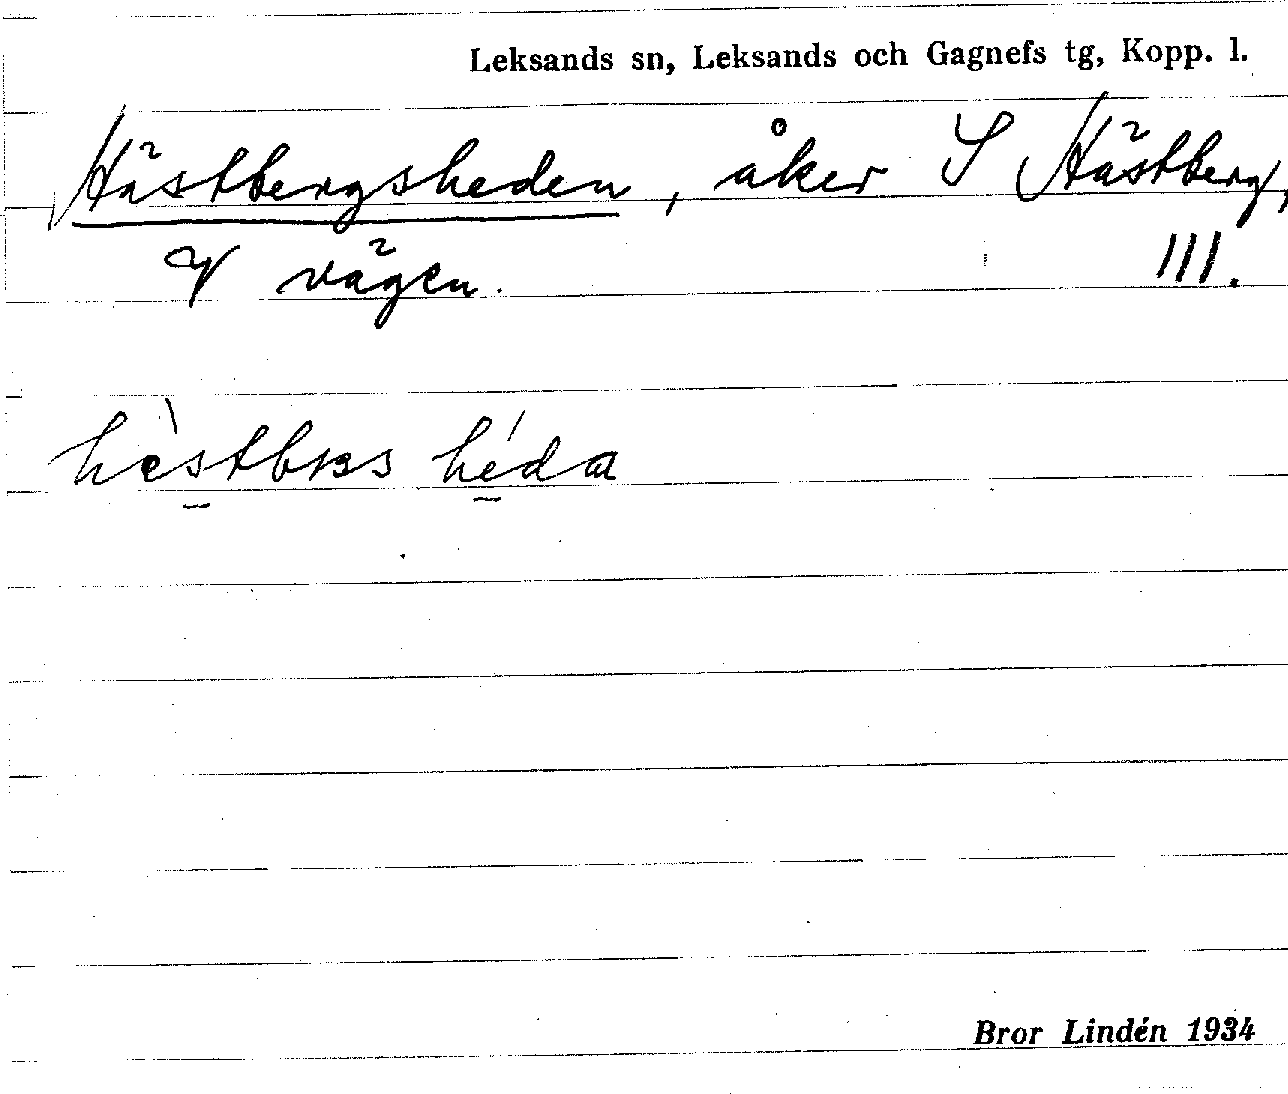 Leksands sn, Leksands och Gagnefs tg, Kopp. l.
Hästbergsheden, åker S Hästberg,
V vägen. III.
hèstbɪs héda
Bror Lindén 1934